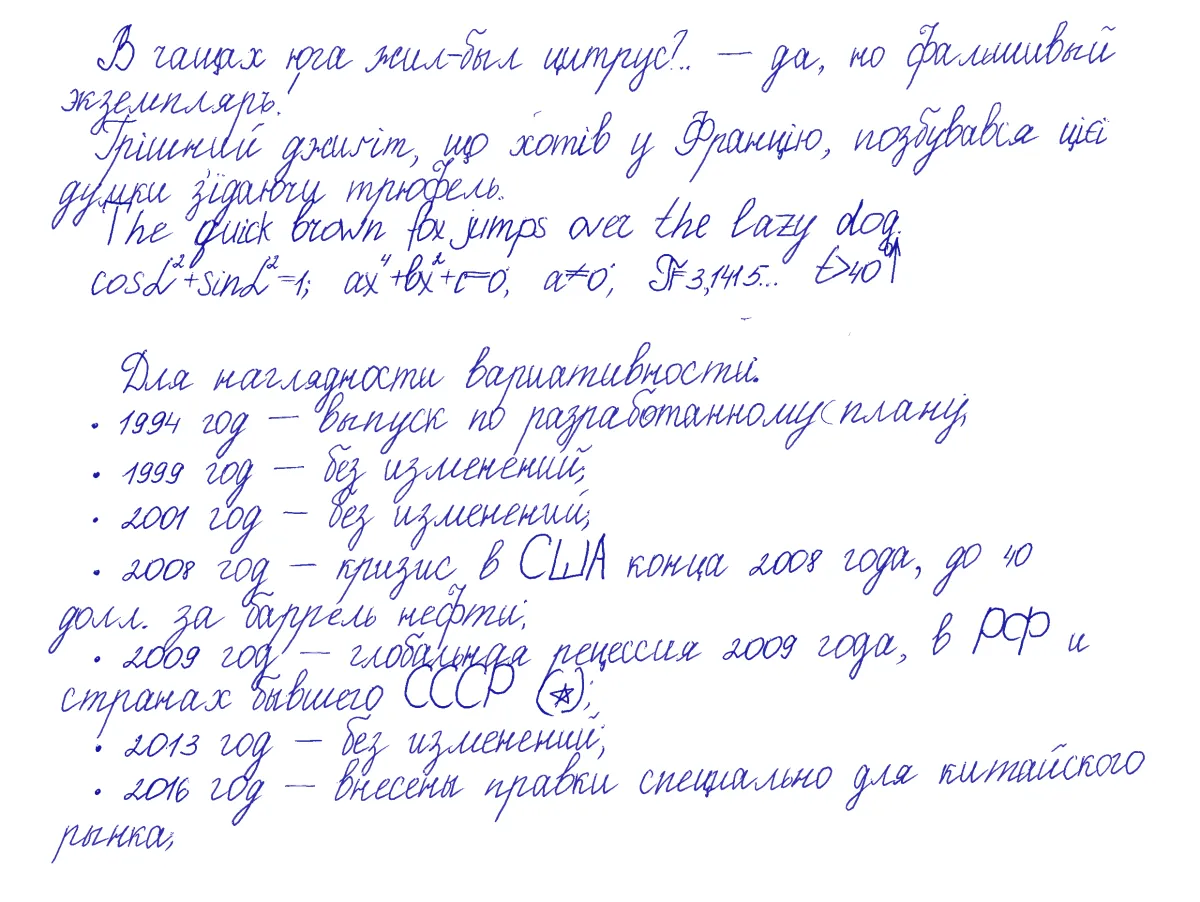 В чащах юга жил-был цитрус?.. — да, но фальшивый
экземпляръ.
Грішний джигіт, що хотів у Францію, позбувався цієї
думки з'їдаючи трюфель.
The quick brown fox jumps over the lazy dog.
cosα²+sinα²=1; ax⁴+bx²+c=0; a≠0; π=3,1415... t>40°↑
Для наглядности вариативности:
• 1994 год — выпуск по разработанному плану;
• 1999 год — без изменений;
• 2001 год — без изменений;
• 2008 год — кризис в США конца 2008 года, до 40
долл. за баррель нефти;
• 2009 год — глобальная рецессия 2009 года, в РФ и
странах бывшего СССР (☆);
• 2013 год — без изменений;
• 2016 год — внесены правки специально для китайского
рынка;